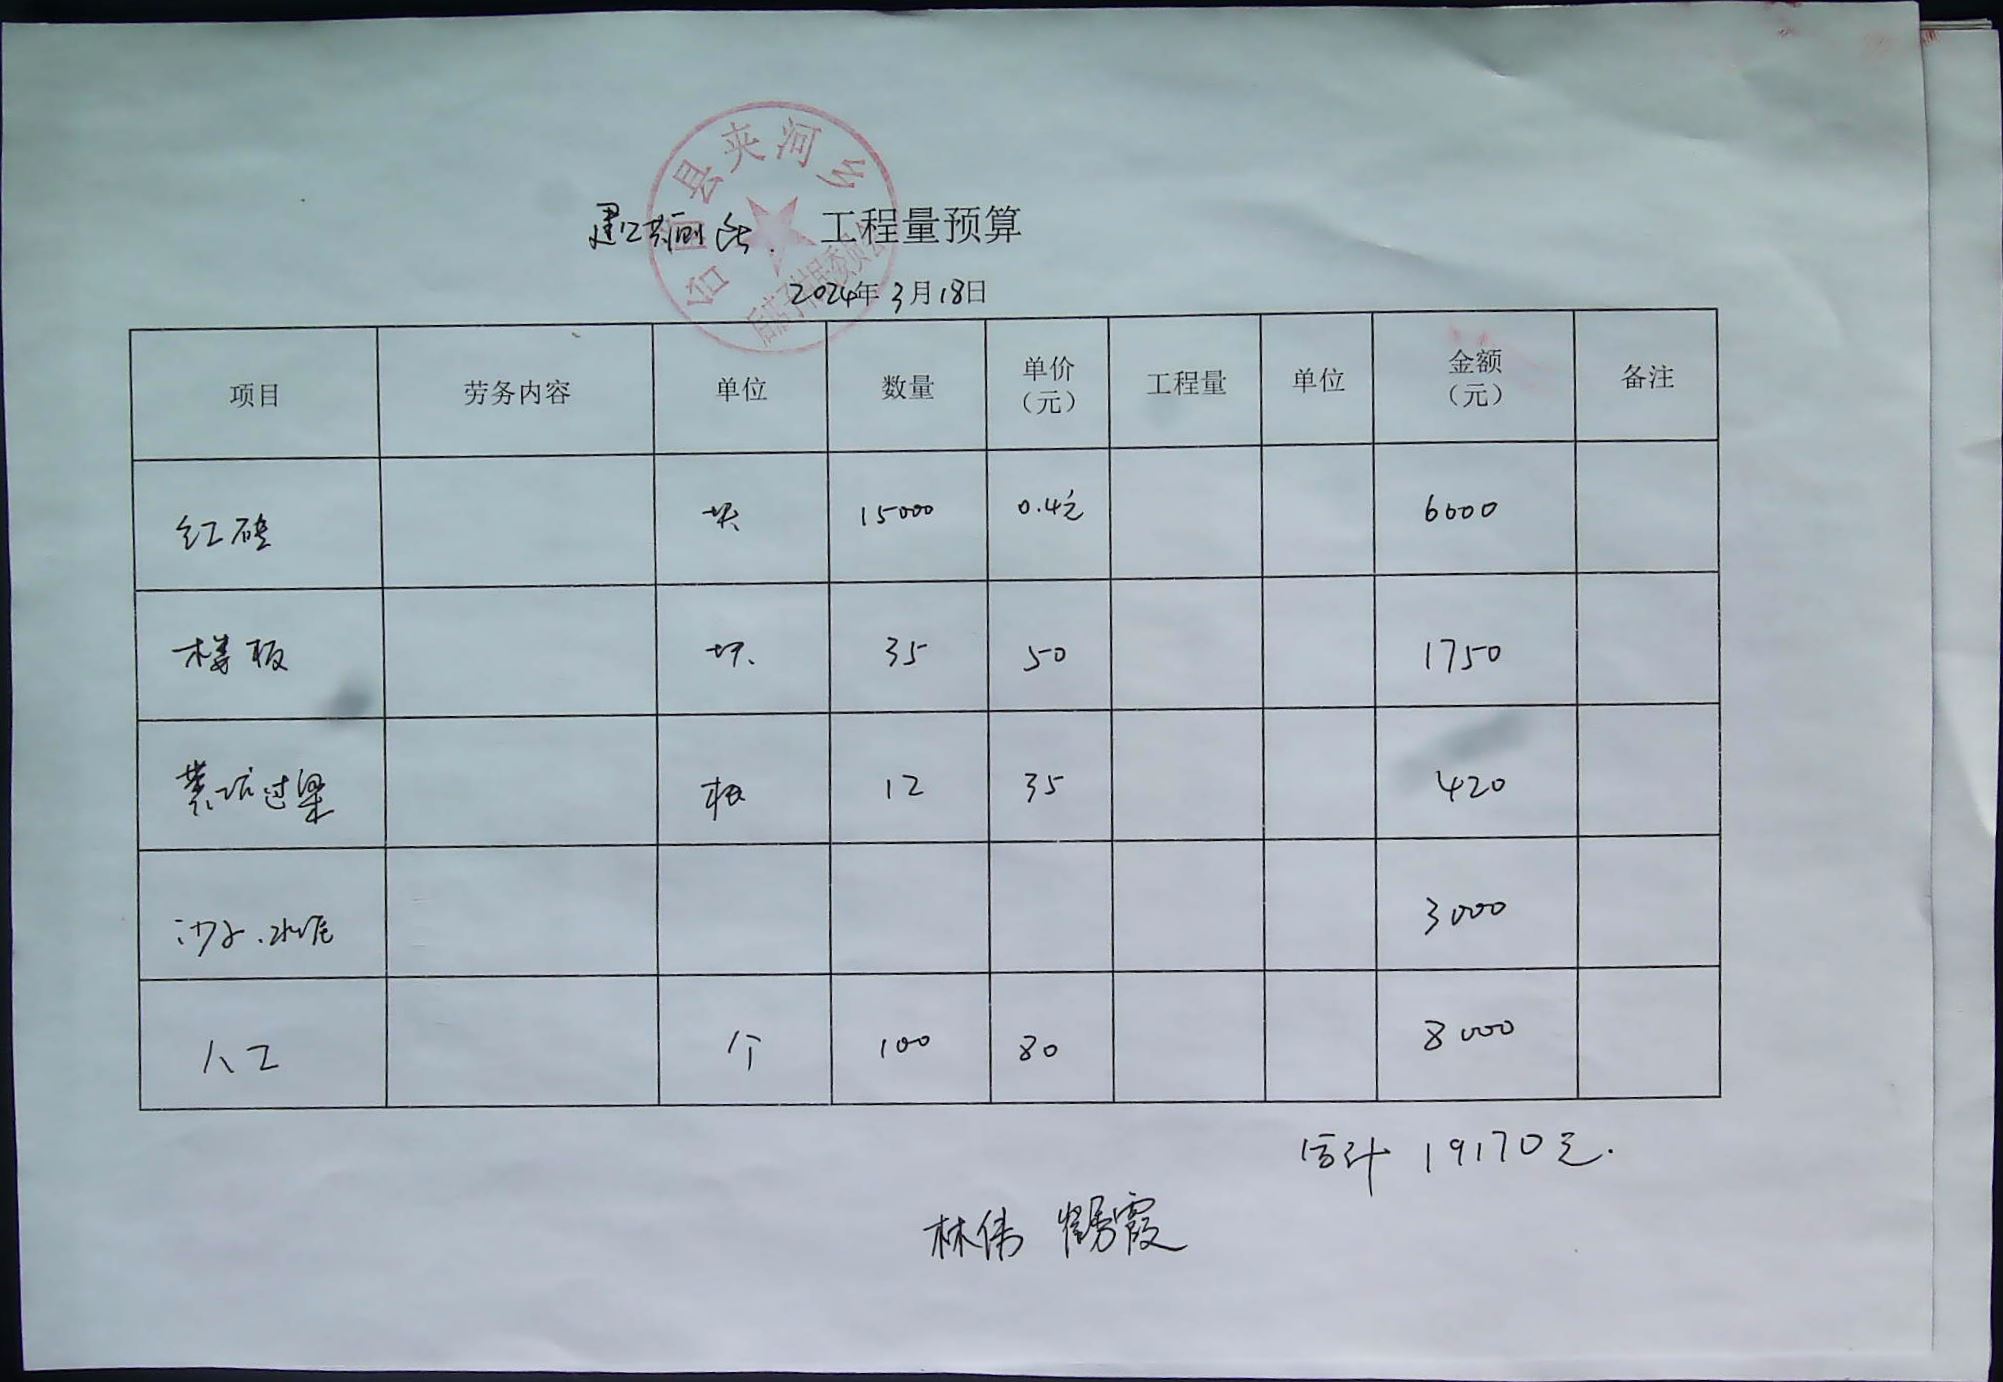 县夹河乡
建公共厕所 工程量预算
2024年3月18日
项目 劳务内容 单位 数量 单价（元） 工程量 单位 金额（元） 备注
红砖 块 15000 0.4元 6000
楼板 块 35 50 1750
粪坑过梁 根 12 35 420
沙子、水泥 3000
人工 个 100 80 8000
合计 19170元.
林伟 霞